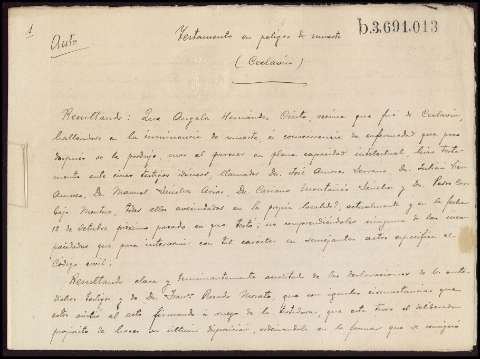 1
Auto
Testamento en peligro de muerte
b.3.691.013
(Ceclavín)
Resultando: Que Angela Hernández Prieto, vecina que fué de Ceclavín,
hallandose en la inminencia de muerte á consecuencia de enfermedad que poco
despues se la produjo, mas al parecer en plena capacidad intelectual, hizo testa-
mento ante cinco testigos idoneos, llamados Dn. José Amores Serrano, Dn. Julián
Amores, Dn. Manuel Sánchez Arias, Dn. Sánchez y Dn. Pedro
Montero, todos ellos avecindados en la propia localidad, actualmente y en la fecha
12 de Octubre próximo pasado en que testó; no comprendiéndoles ninguna de las inca-
pacidades que para intervenir con tal caracter en semejantes actos especifica el
Código civil;
Resultando clara y terminantemente acreditado de las declaraciones de los ante-
dichos testigos y de Dn. Rosado que con iguales circunstancias que
estos asistió al acto firmando á ruego de la testadora, que esta tuvo el deliberado
propósito de hacer su última disposición, ordenándola en la forma que se consigna